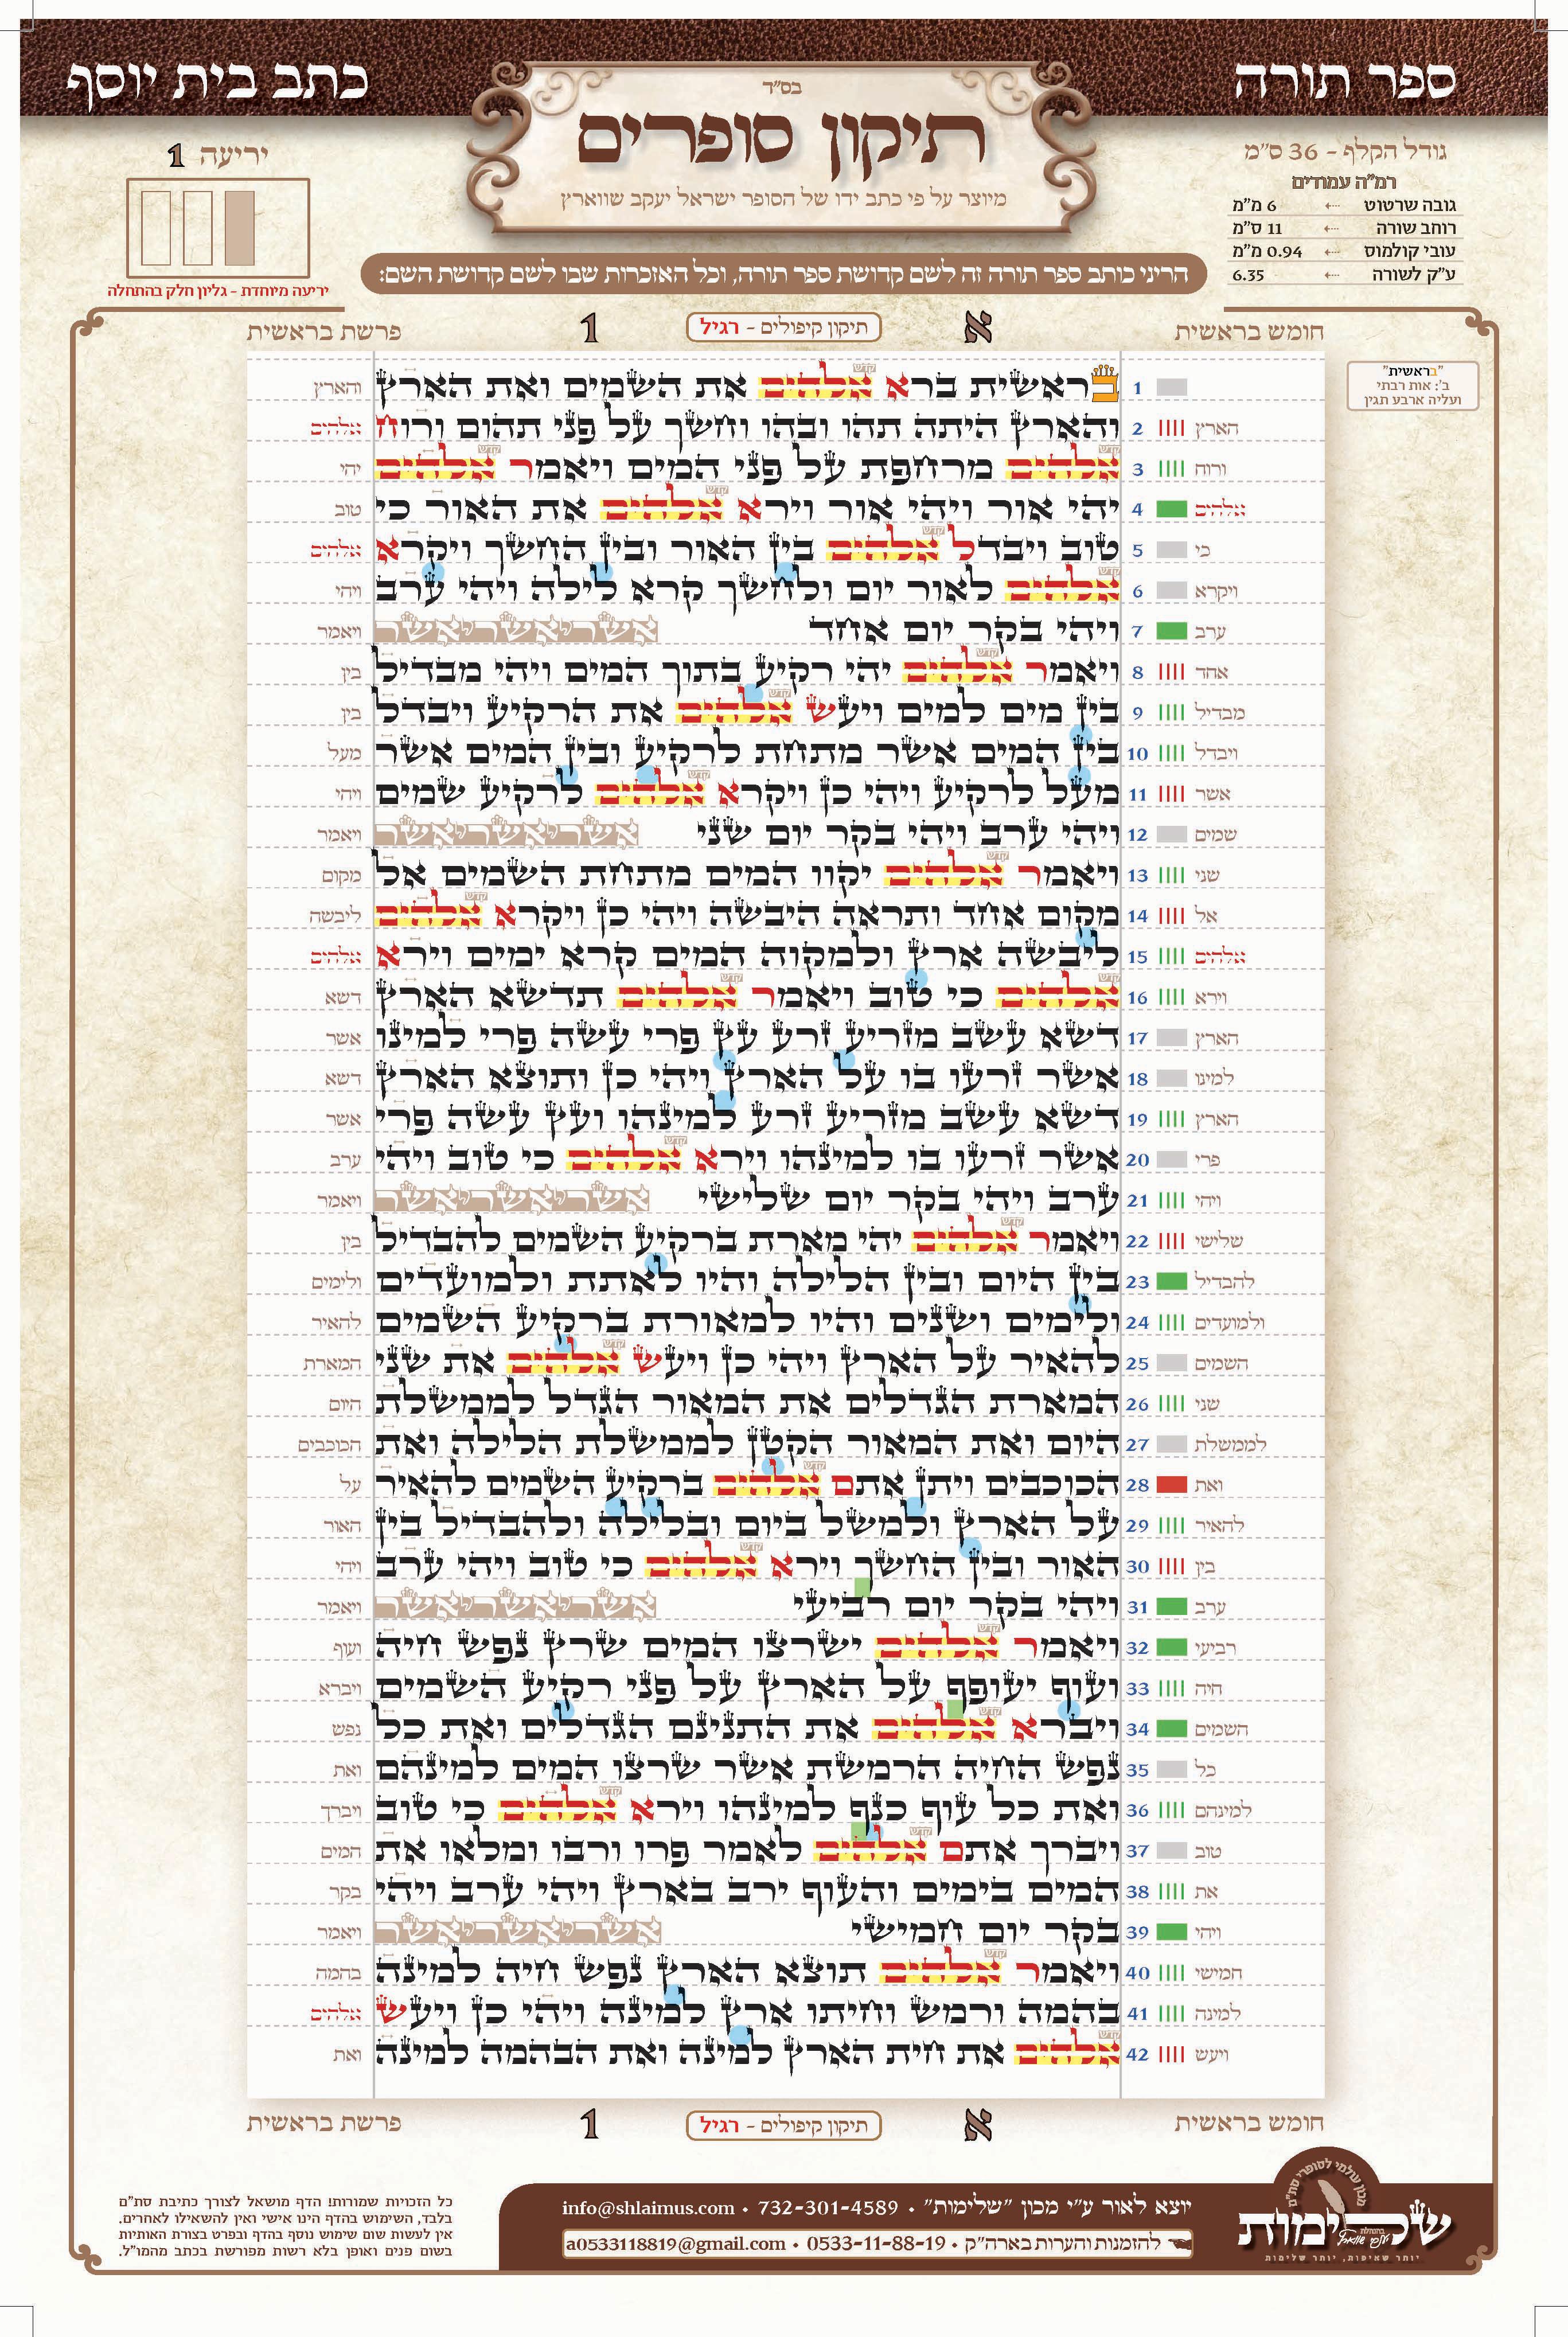 ספר תורה
כתב בית יוסף
בס"ד
תיקון סופרים
מיוצר על פי כתב ידו של הסופר ישראל יעקב שווארץ
גודל הקלף - 36 ס"מ
רמ"ה עמודים
גובה שרטוט 6 מ"מ
רוחב שורה 11 ס"מ
עובי קולמוס 0.94 מ"מ
ע"ק לשורה 6.35
יריעה 1
יריעה מיוחדת - גליון חלק בהתחלה
הריני כותב ספר תורה זה לשם קדושת ספר תורה, וכל האזכרות שבו לשם קדושת השם:
חומש בראשית א תיקון קיפולים - רגיל 1 פרשת בראשית
"בראשית"
ב': אות רבתי
ועליה ארבע תגין
1 בראשית ברא קדש אלהים את השמים ואת הארץ והארץ
הארץ 2 והארץ היתה תהו ובהו וחשך על פני תהום ורוח אלהים
ורוח 3 קדש אלהים מרחפת על פני המים ויאמר קדש אלהים יהי
אלהים 4 יהי אור ויהי אור וירא קדש אלהים את האור כי טוב
כי 5 טוב ויבדל קדש אלהים בין האור ובין החשך ויקרא אלהים
ויקרא 6 קדש אלהים לאור יום ולחשך קרא לילה ויהי ערב ויהי
ערב 7 ויהי בקר יום אחד אשר אשר אשר ויאמר
אחד 8 ויאמר קדש אלהים יהי רקיע בתוך המים ויהי מבדיל בין
מבדיל 9 בין מים למים ויעש קדש אלהים את הרקיע ויבדל בין
ויבדל 10 בין המים אשר מתחת לרקיע ובין המים אשר מעל
אשר 11 מעל לרקיע ויהי כן ויקרא קדש אלהים לרקיע שמים ויהי
שמים 12 ויהי ערב ויהי בקר יום שני אשר אשר אשר ויאמר
שני 13 ויאמר קדש אלהים יקוו המים מתחת השמים אל מקום
אל 14 מקום אחד ותראה היבשה ויהי כן ויקרא קדש אלהים ליבשה
אלהים 15 ליבשה ארץ ולמקוה המים קרא ימים וירא אלהים
וירא 16 קדש אלהים כי טוב ויאמר קדש אלהים תדשא הארץ דשא
הארץ 17 דשא עשב מזריע זרע עץ פרי עשה פרי למינו אשר
למינו 18 אשר זרעו בו על הארץ ויהי כן ותוצא הארץ דשא
הארץ 19 דשא עשב מזריע זרע למינהו ועץ עשה פרי אשר
פרי 20 אשר זרעו בו למינהו וירא קדש אלהים כי טוב ויהי ערב
ויהי 21 ערב ויהי בקר יום שלישי אשר אשר אשר ויאמר
שלישי 22 ויאמר קדש אלהים יהי מארת ברקיע השמים להבדיל בין
להבדיל 23 בין היום ובין הלילה והיו לאתת ולמועדים ולימים
ולמועדים 24 ולימים ושנים והיו למאורת ברקיע השמים להאיר
השמים 25 להאיר על הארץ ויהי כן ויעש קדש אלהים את שני המארת
שני 26 המארת הגדלים את המאור הגדל לממשלת היום
לממשלת 27 היום ואת המאור הקטן לממשלת הלילה ואת הכוכבים
ואת 28 הכוכבים ויתן אתם קדש אלהים ברקיע השמים להאיר על
להאיר 29 על הארץ ולמשל ביום ובלילה ולהבדיל בין האור
בין 30 האור ובין החשך וירא קדש אלהים כי טוב ויהי ערב ויהי
ערב 31 ויהי בקר יום רביעי אשר אשר אשר ויאמר
רביעי 32 ויאמר קדש אלהים ישרצו המים שרץ נפש חיה ועוף
חיה 33 ועוף יעופף על הארץ על פני רקיע השמים ויברא
השמים 34 ויברא קדש אלהים את התנינם הגדלים ואת כל נפש
כל 35 נפש החיה הרמשת אשר שרצו המים למינהם ואת
למינהם 36 ואת כל עוף כנף למינהו וירא קדש אלהים כי טוב ויברך
טוב 37 ויברך אתם קדש אלהים לאמר פרו ורבו ומלאו את המים
את 38 המים בימים והעוף ירב בארץ ויהי ערב ויהי בקר
ויהי 39 בקר יום חמישי אשר אשר אשר ויאמר
חמישי 40 ויאמר קדש אלהים תוצא הארץ נפש חיה למינה בהמה
למינה 41 בהמה ורמש וחיתו ארץ למינה ויהי כן ויעש אלהים
ויעש 42 קדש אלהים את חית הארץ למינה ואת הבהמה למינה ואת
חומש בראשית א תיקון קיפולים - רגיל 1 פרשת בראשית
מכון עולמי לסופרי סת"ם
שלימות
יותר שאיפות, יותר שלימות
יוצא לאור ע"י מכון "שלימות" • 732-301-4589 • info@shlaimus.com
להזמנות והערות בארה"ק • 0533-11-88-19 • a0533118819@gmail.com
כל הזכויות שמורות! הדף מושאל לצורך כתיבת סת"ם
בלבד, השימוש בהדף הינו אישי ואין להשאילו לאחרים.
אין לעשות שום שימוש נוסף בהדף ובפרט בצורת האותיות
בשום פנים ואופן בלא רשות מפורשת בכתב מהמו"ל.